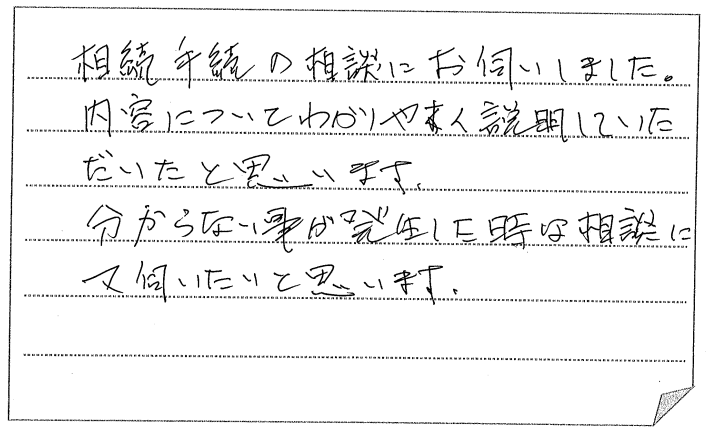 相続手続の相談にお伺いしました。
内容についてわかりやすく説明していた
だいたと思います。
分からない事が発生した時は相談に
又伺いたいと思います。